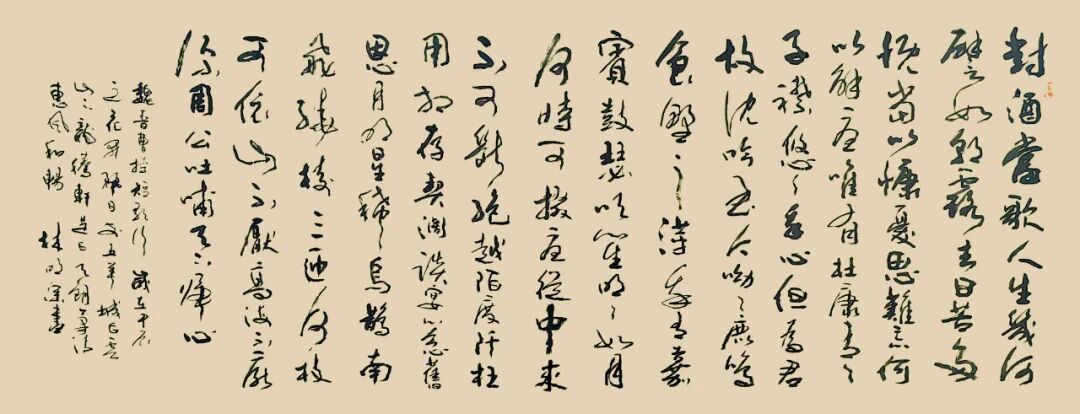 對酒當歌人生幾何
譬如朝露去日苦多
慨當以慷憂思難忘何
以解憂唯有杜康青々
子襟悠々我心但為君
故沈吟至今呦々鹿鳴
食野之苹我有嘉
賓鼓瑟吹笙明々如月
何時可掇憂從中來
不可斷絕越陌度阡枉
用相存契闊談宴心念舊
恩月明星稀烏鵲南
飛繞樹三匝何枝
可依山不厭高海不厭
深周公吐哺天下歸心
魏曹操短歌行 歲在
之花月 日於五羊城白雲
山之龍騰軒是日天朗氣清
惠風和暢 林書